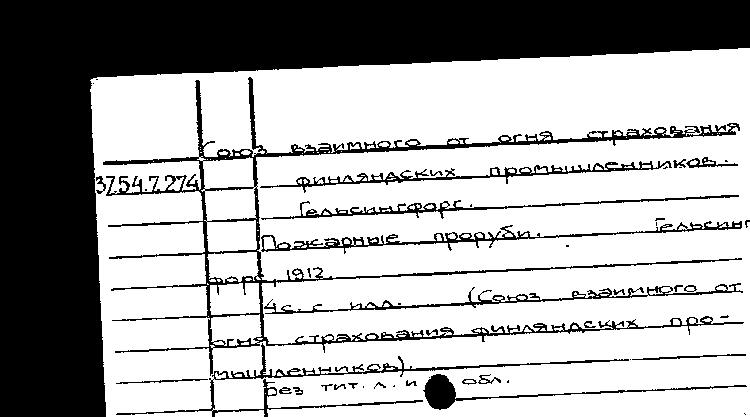 Союз взаимного от огня страхования
37.54.7.274
финляндских промышленников.
Гельсингфорс.
Пожарные проруби. Гельсинг
форс, 1912.
4с. с илл. (Союз взаимного от
огня страхования финляндских про-
мышленников).
Без тит. л. и обл.